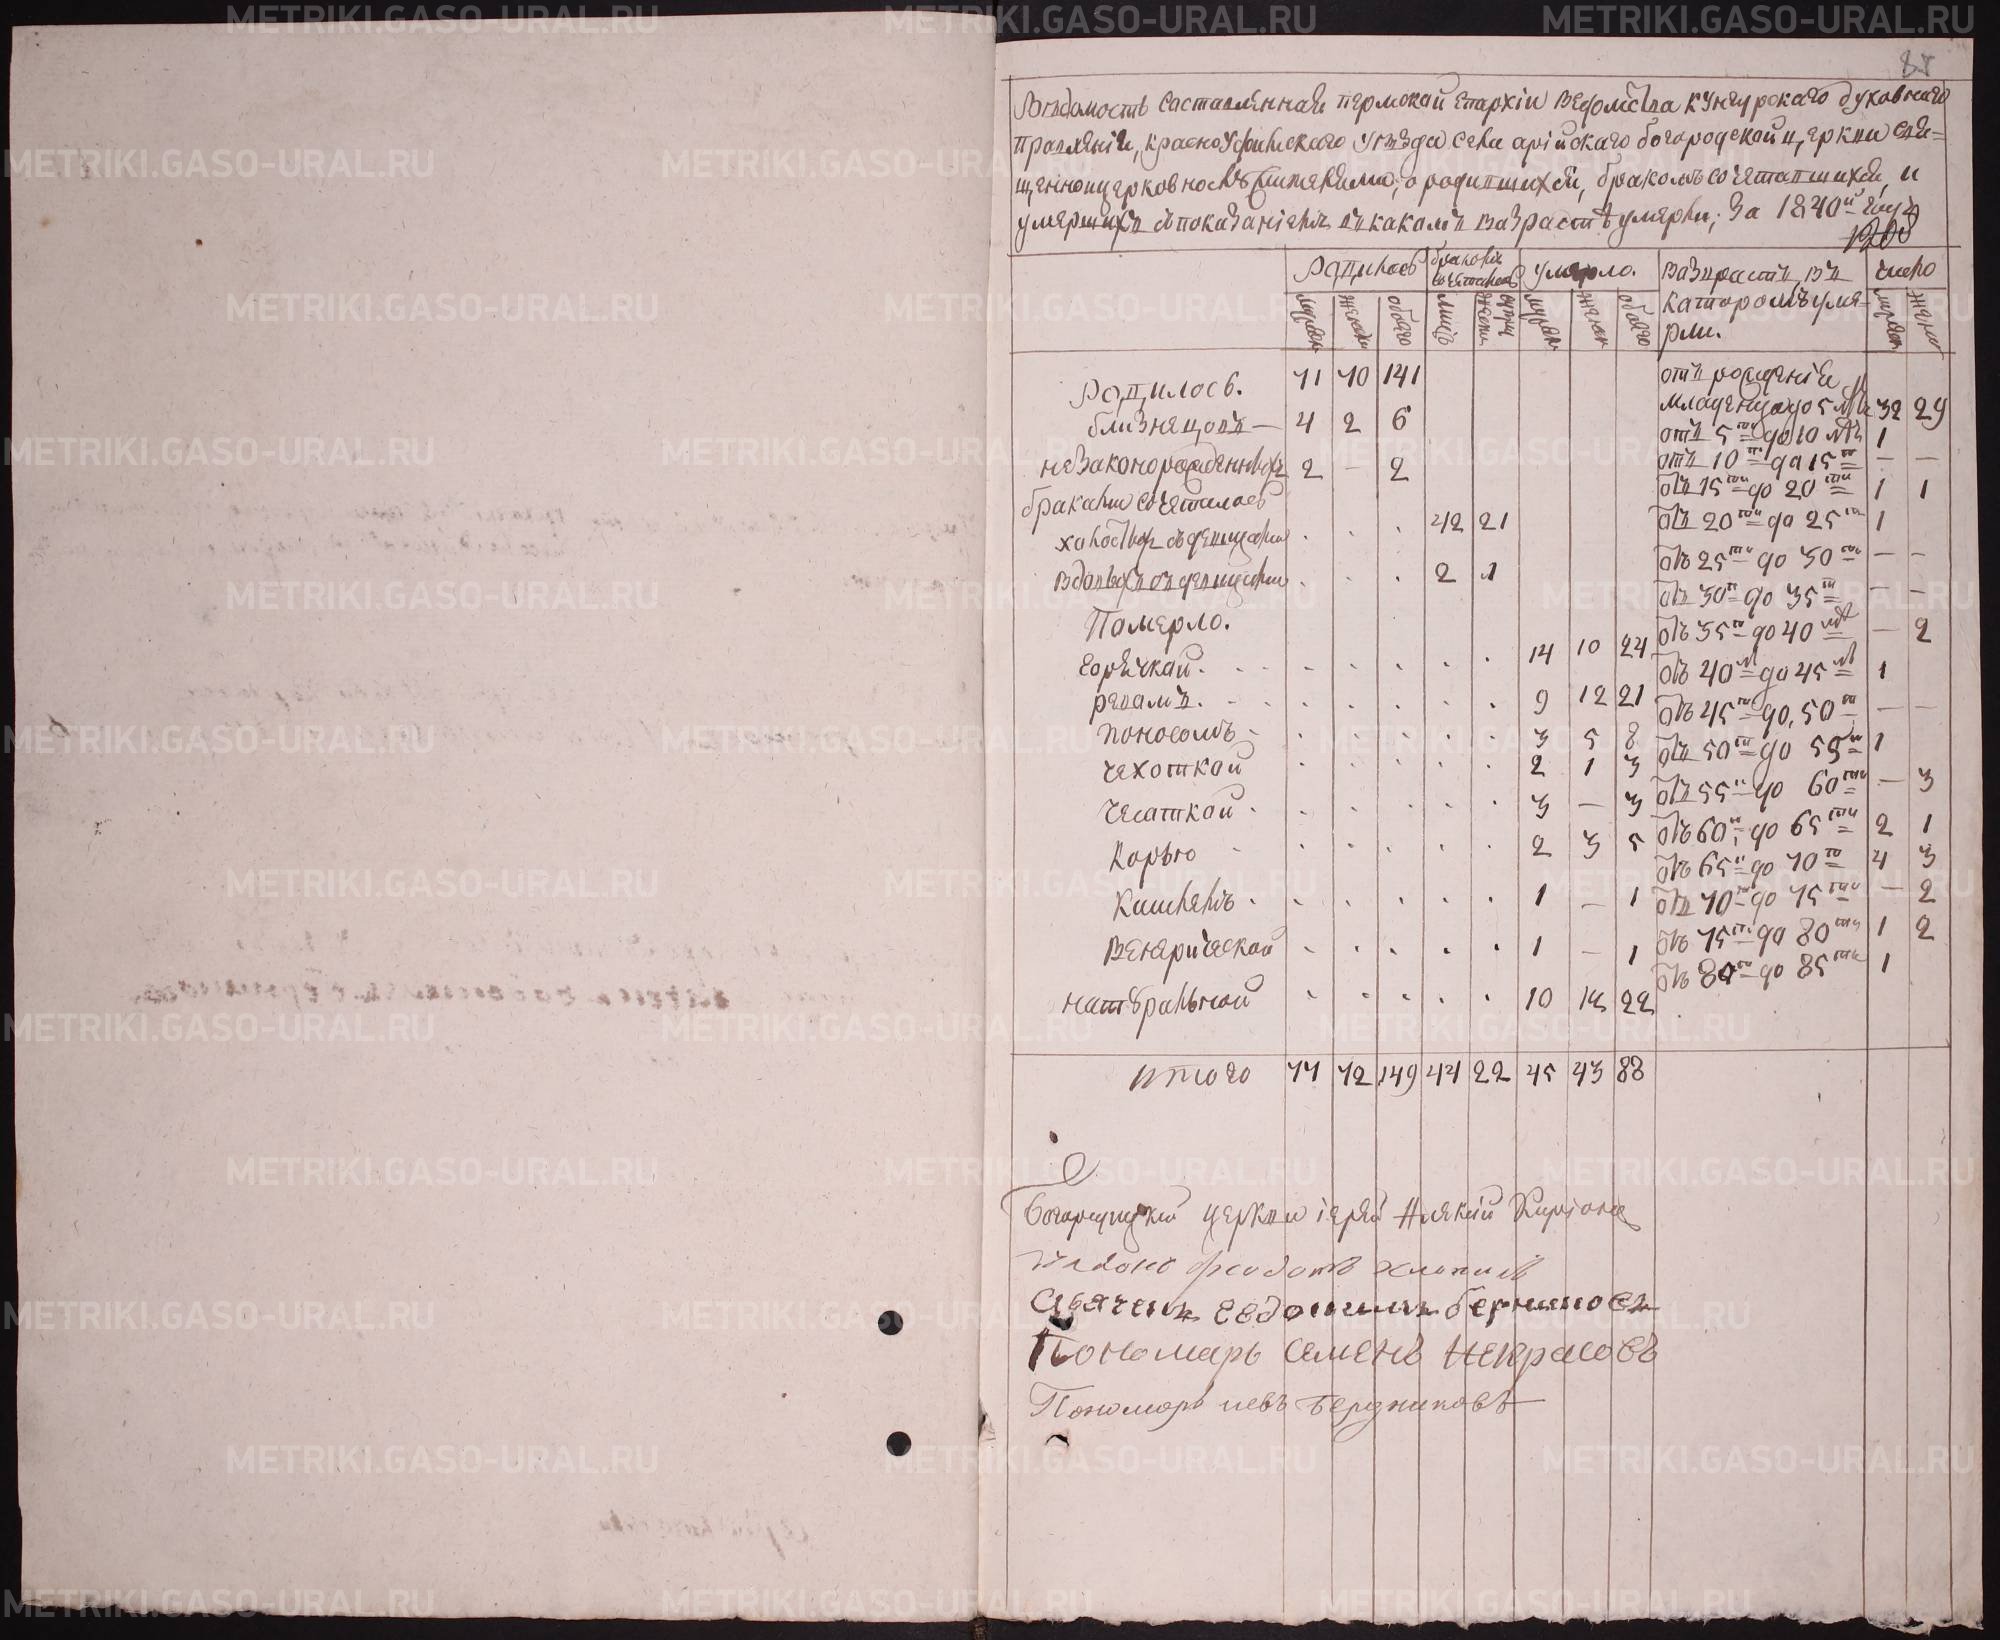 Вѣдомость составленная пермской епархіи ведомства кунгурскаго духовнаго
правленія, красноуфимскаго уѣзда села арійскаго богородской церкви свя-
щенноцерковнослужителями, о родившихся, бракомъ сочетавшихся, и
умершихъ съ показаніемъ въ какомъ возрастѣ умерли, за 1840й годъ
1208
Родилось бракомъ сочеталось умерло. Возрастъ, въ которомъ умерли. число
мужеск женск обоего лицъ мужеск женск обоего мужеск женск
Родилось. 71 70 141
близнецовъ — 4 2 6
незаконорожденныхъ 2 — 2
браками сочеталось
холостыхъ съ девицами 42 21
вдовыхъ съ девицами 2 1
Померло.
горячкой 14 10 24
ревомъ 9 12 21
поносомъ 3 5 8
чехоткой 2 1 3
чесоткой 3 — 3
Корью 2 3 5
Кашлемъ 1 — 1
Венерической 1 — 1
натуральной 10 12 22
итого 77 72 149 44 22 45 43 88
отъ рожденія
младенца до 5 лѣт 32 29
отъ 5 до 10 лѣтъ 1
отъ 10 до 15 — —
отъ 15 до 20 1 1
отъ 20 до 25 1
отъ 25 до 30 — —
отъ 30 до 35 — —
отъ 35 до 40 — 2
отъ 40 до 45 1
отъ 45 до 50 — —
отъ 50 до 55 1
отъ 55 до 60 — 3
отъ 60 до 65 2 1
отъ 65 до 70 4 3
отъ 70 до 75 — 2
отъ 75 до 80 1 2
отъ 80 до 85 1
церкви іерей
Пономарь Семенъ Некрасовъ
Пономарь левъ Берзниковъ
METRIKI.GASO-URAL.RU